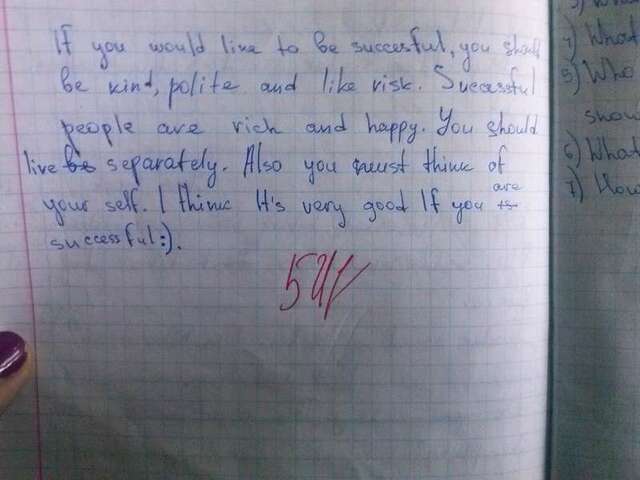 If you would like to be succesful, you should
be kind, polite and like risk. Successful
people are rich and happy. You should
live separately. Also you must think of
your self. I think It's very good If you are
successful:).
5
3) What
4) What
5) Who
shou
6) What
7) How